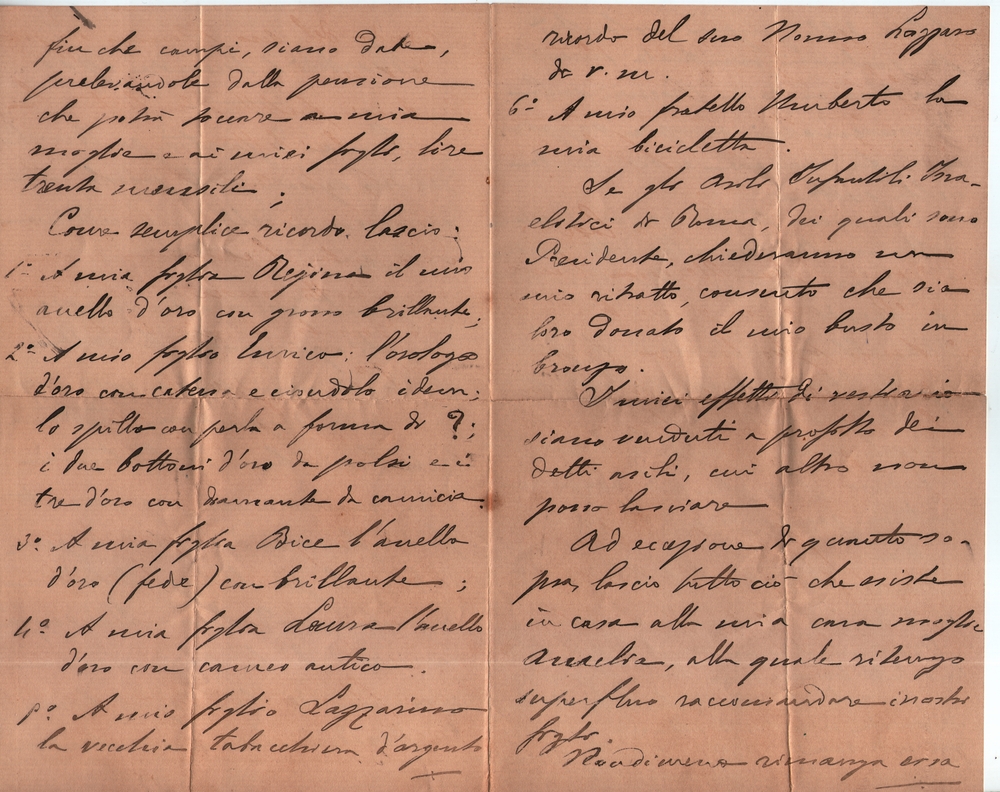 fin che campi, siano date,
prelevandole dalla pensione
che potrà toccare a mia
moglie e ai miei figli, lire
trenta mensili.
Come semplice ricordo lascio:
1º A mia figlia Regina il mio
anello d'oro con grosso brillante;
2º A mio figlio Enrico: l'orologio
d'oro con catena e ciondolo idem;
lo spillo con perla a forma di ?;
i due bottoni d'oro da polsi e i
tre d'oro con diamante da camicia.
3º A mia figlia Bice l'anello
d'oro (fede) con brillante;
4º A mia figlia Laura l'anello
d'oro con cameo antico.
5º A mio figlio Lazzarino
la vecchia tabacchiera d'argento
ricordo del suo Nonno Lazzaro
di v. m.
6º A mio fratello Umberto la
mia bicicletta.
Se gli Asili Infantili Isra-
elitici di Roma, dei quali sono
Presidente, chiederanno un
mio ritratto, consento che sia
loro donato il mio busto in
bronzo.
I miei effetti di vestiario
siano venduti a profitto dei
detti asili, cui altro non
posso lasciare
Ad eccezione di quanto so-
pra, lascio tutto ciò che esiste
in casa alla mia cara moglie
Amelia, alla quale ritengo
superfluo raccomandare i nostri
figli.
Nondimeno rimanga essa